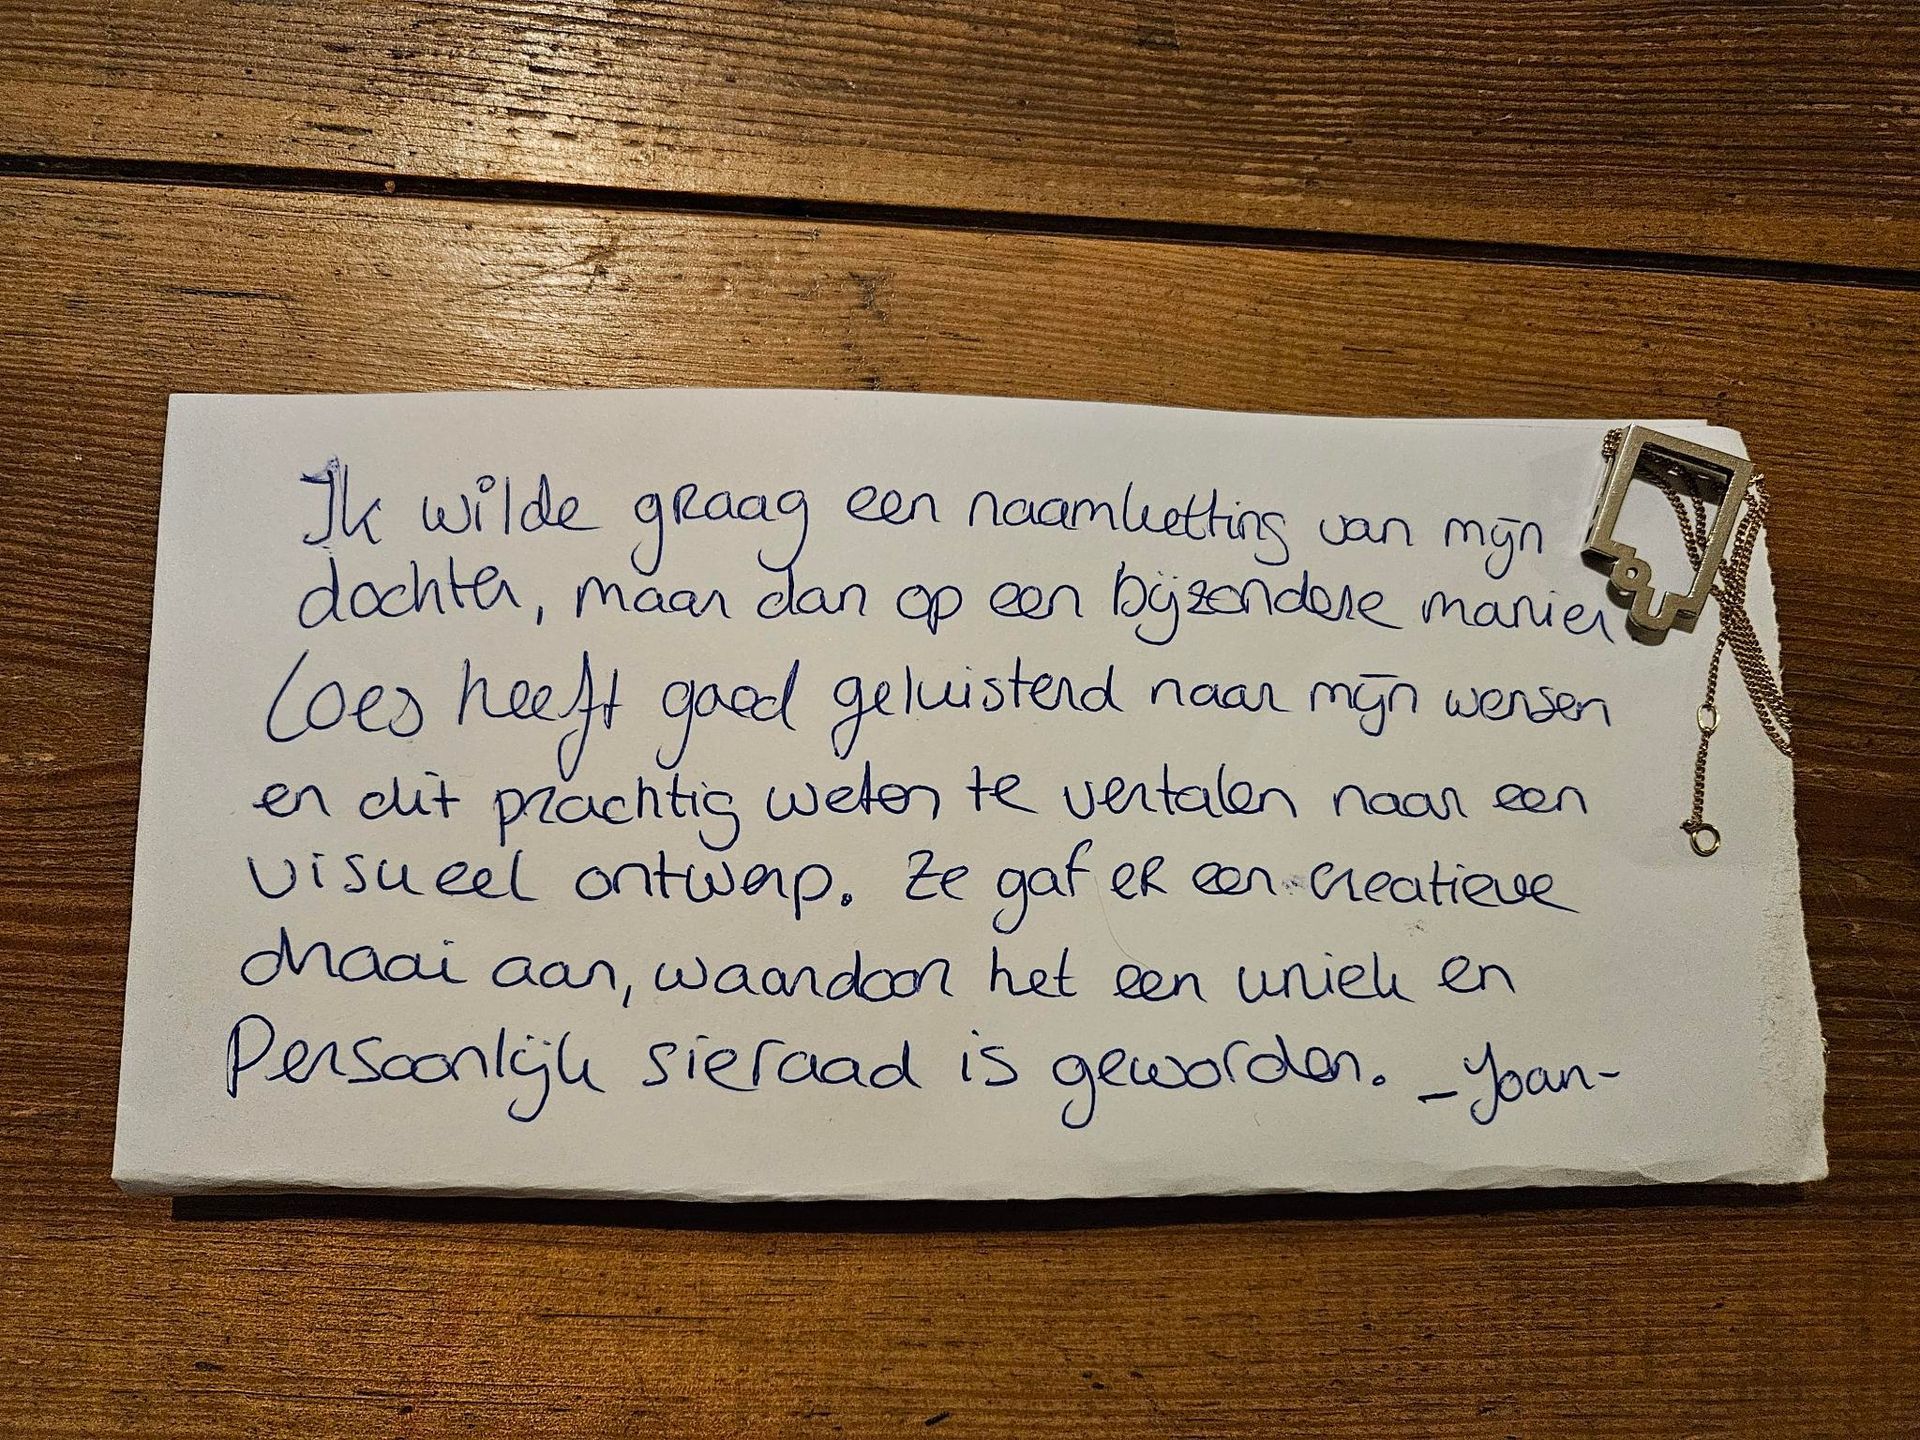 Ik wilde graag een naamketting van mijn
dochter, maar dan op een bijzondere manier
Loes heeft goed geluisterd naar mijn wensen
en dit prachtig weten te vertalen naar een
visueel ontwerp. Ze gaf er een creatieve
draai aan, waardoor het een uniek en
Persoonlijk sieraad is geworden. - Yoan -